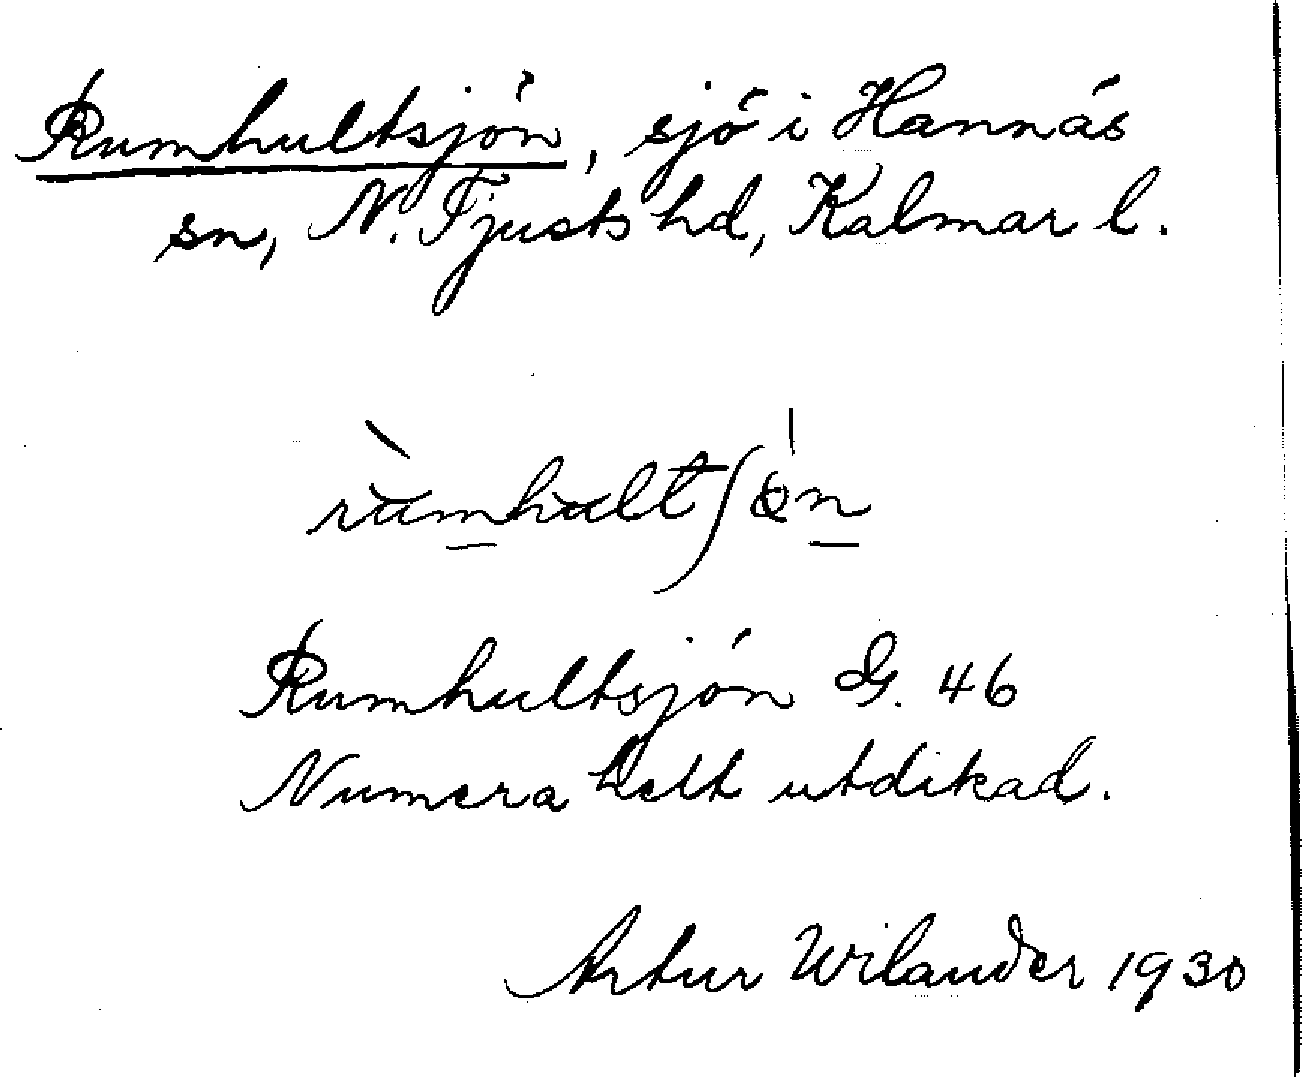 Rumhultsjön, sjö i Hannäs
sn, N. Tjusts hd, Kalmar l.
rùmhultʃö́n
Rumhultsjön G. 46
Numera helt utdikad.
Artur Wilander 1930